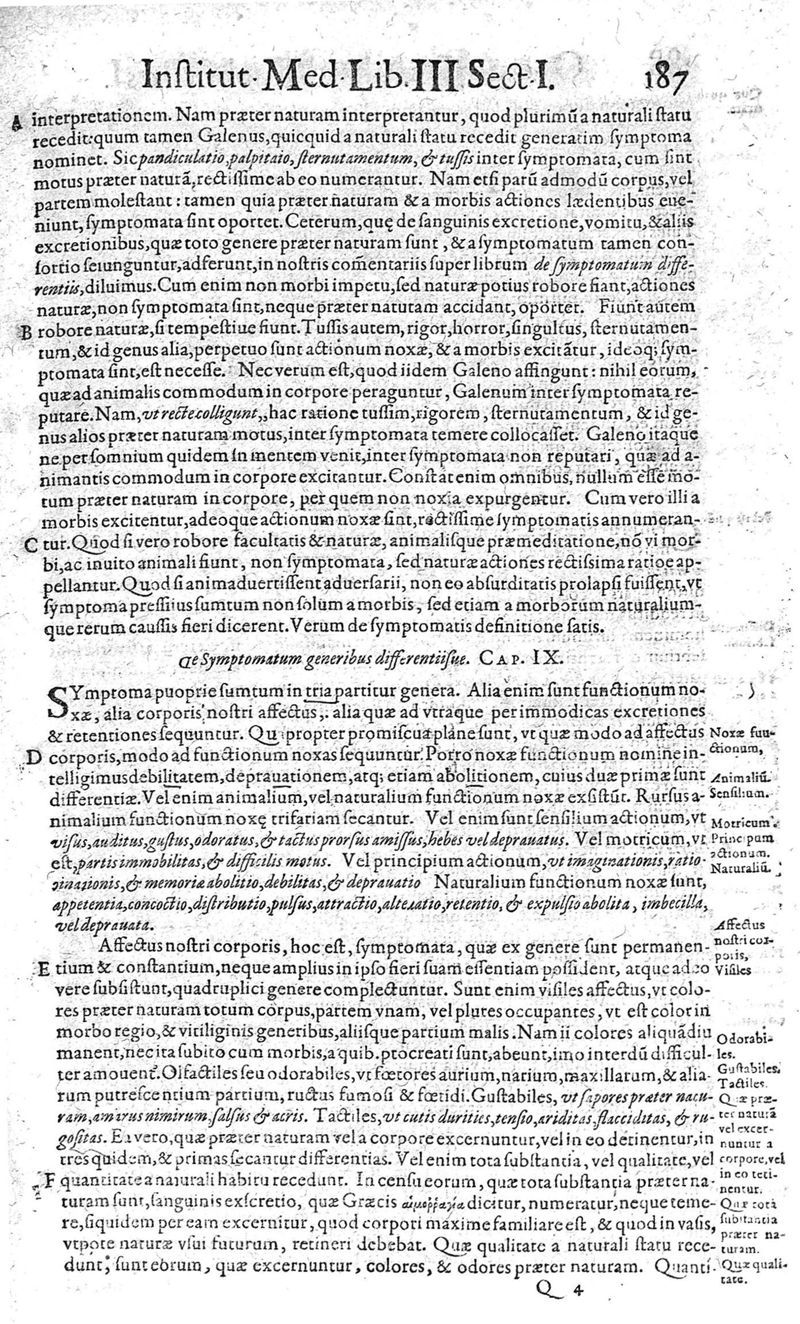 Institut. Med. Lib. III Sect. I. 187
A interpretationem. Nam præter naturam interpretantur, quod plurimũ a naturali statu
recedit: quum tamen Galenus, quicquid a naturali statu recedit generatim symptoma
nominet. Sic pandiculatio, palpitaio, sternutamentum, & tussis inter symptomata, cum sint
motus præter naturã, rectissime ab eo numerantur. Nam etsi parũ admodũ corpus, vel
partem molestant: tamen quia præter naturam & a morbis actiones lædentibus eue-
niunt, symptomata sint oportet. Ceterum, quę de sanguinis excretione, vomitu, & aliis
excretionibus, quæ toto genere præter naturam sunt, & a symptomatum tamen con-
sortio seiunguntur, adferunt, in nostris cõmentariis super librum de symptomatum diffe-
rentiis, diluimus. Cum enim non morbi impetu, sed naturæ potius robore fiant, actiones
naturæ, non symptomata sint, neque præter naturam accidant, oportet. Fiunt autem
B robore naturæ, si tempestiue fiunt. Tussis autem, rigor, horror, singultus, sternutamen-
tum, & id genus alia, perpetuo sunt actionum noxæ, & a morbis excitãtur, ideoq; sym-
ptomata sint, est necesse. Nec verum est, quod iidem Galeno affingunt: nihil eorum,
quæ ad animalis commodum in corpore peraguntur, Galenum inter symptomata re-
putare. Nam, vt recte colligunt, hac ratione tussim, rigorem, sternutamentum, & id ge-
nus alios præter naturam motus, inter symptomata temere collocasset. Galeno itaque
ne per somnium quidem in mentem venit, inter symptomata non reputari, quæ ad a-
nimantis commodum in corpore excitantur. Constat enim omnibus, nullum esse mo-
tum præter naturam in corpore, per quem non noxia expurgentur. Cum vero illi a
morbis excitentur, adeoque actionum noxæ sint, rectissime symptomatis annumeran-
C tur. Quod si vero robore facultatis & naturæ, animalisque præmeditatione, nõ vi mor-
bi, ac inuito animali fiunt, non symptomata, sed naturæ actiones rectissima ratioe ap-
pellantur. Quod si animaduertissent aduersarii, non eo absurditatis prolapsi fuissent, vt
symptoma pressius sumtum non solum a morbis, sed etiam a morborum naturalium-
que rerum caussis fieri dicerent. Verum de symptomatis definitione satis.
De Symptomatum generibus differentiisue. CAP. IX.
SYmptoma puoprie sumtum in tria partitur genera. Alia enim sunt functionum no-
xæ, alia corporis nostri affectus,: alia quæ ad vtraque per immodicas excretiones
& retentiones sequuntur. Qu propter promiscua plane sunt, vt quæ modo ad affectus
D corporis, modo ad functionum noxas sequuntur. Porro noxæ functionum nomine in-
telligimus debilitatem, deprauationem, atq; etiam abolitionem, cuius duæ primæ sunt
differentiæ. Vel enim animalium, vel naturalium functionum noxæ exsistũt. Rursus a-
nimalium functionum noxę trifariam secantur. Vel enim sunt sensilium actionum, vt
visus, auditus, gustus, odoratus, & tactus prorsus amissus, hebes vel deprauatus. Vel motricum, vt
est, partis immobilitas, & difficilis motus. Vel principium actionum, vt imaginationis, ratio-
cinationis, & memoria abolitio, debilitas, & deprauatio Naturalium functionum noxæ sunt,
appetentia, concoctio, distributio, pulsus, attractio, alteratio, retentio, & expulsio abolita, imbecilla,
vel deprauata.
Affectus nostri corporis, hoc est, symptomata, quæ ex genere sunt permanen-
E tium & constantium, neque amplius in ipso fieri suam essentiam possident, atque adeo
vere subsistunt, quadruplici genere complectuntur. Sunt enim visiles affectus, vt colo-
res præter naturam totum corpus, partem vnam, vel plures occupantes, vt est color in
morbo regio, & vitiliginis generibus, aliisque partium malis. Nam ii colores aliquãdiu
manent, nec ita subito cum morbis, a quib. procreati sunt, abeunt, imo interdũ difficul-
ter amouent. Olfactiles seu odorabiles, vt fœtores aurium, narium, maxillarum, & alia-
rum putrescentium partium, ructus fumosi & fœtidi. Gustabiles, vt sapores præter natu-
ram, amarus nimirum, salsus & acris. Tactiles, vt cutis durities, tensio, ariditas, flacciditas, & ru-
gositas. Ea vero, quæ præter naturam vel a corpore excernuntur, vel in eo detinentur, in
tres quidem, & primas secantur differentias. Vel enim tota substantia, vel qualitate, vel
F quantitate a naturali habitu recedunt. In censu eorum, quæ tota substantia præter na-
turam sunt, sanguinis exscretio, quæ Græcis αἱμορραγία dicitur, numeratur, neque teme-
re, siquidem per eam excernitur, quod corpori maxime familiare est, & quod in vasis,
vtpote naturæ vsui futurum, retineri debebat. Quæ qualitate a naturali statu rece-
dunt, sunt eorum, quæ excernuntur, colores, & odores præter naturam. Quanti-
Q 4
Noxæ fun-
ctionum,
Animaliũ.
Sensilium.
Motricum.
Principum
actionum.
Naturaliũ.
Affectus
nostri cor-
poris,
Visiles
Odorabi-
les.
Gustabiles.
Tactiles.
Quæ præ-
ter naturã
vel excer-
nuntur a
corpore, vel
in eo reti-
nentur.
Quæ tota
substantia
præter na-
turam.
Quæ quali-
tate.